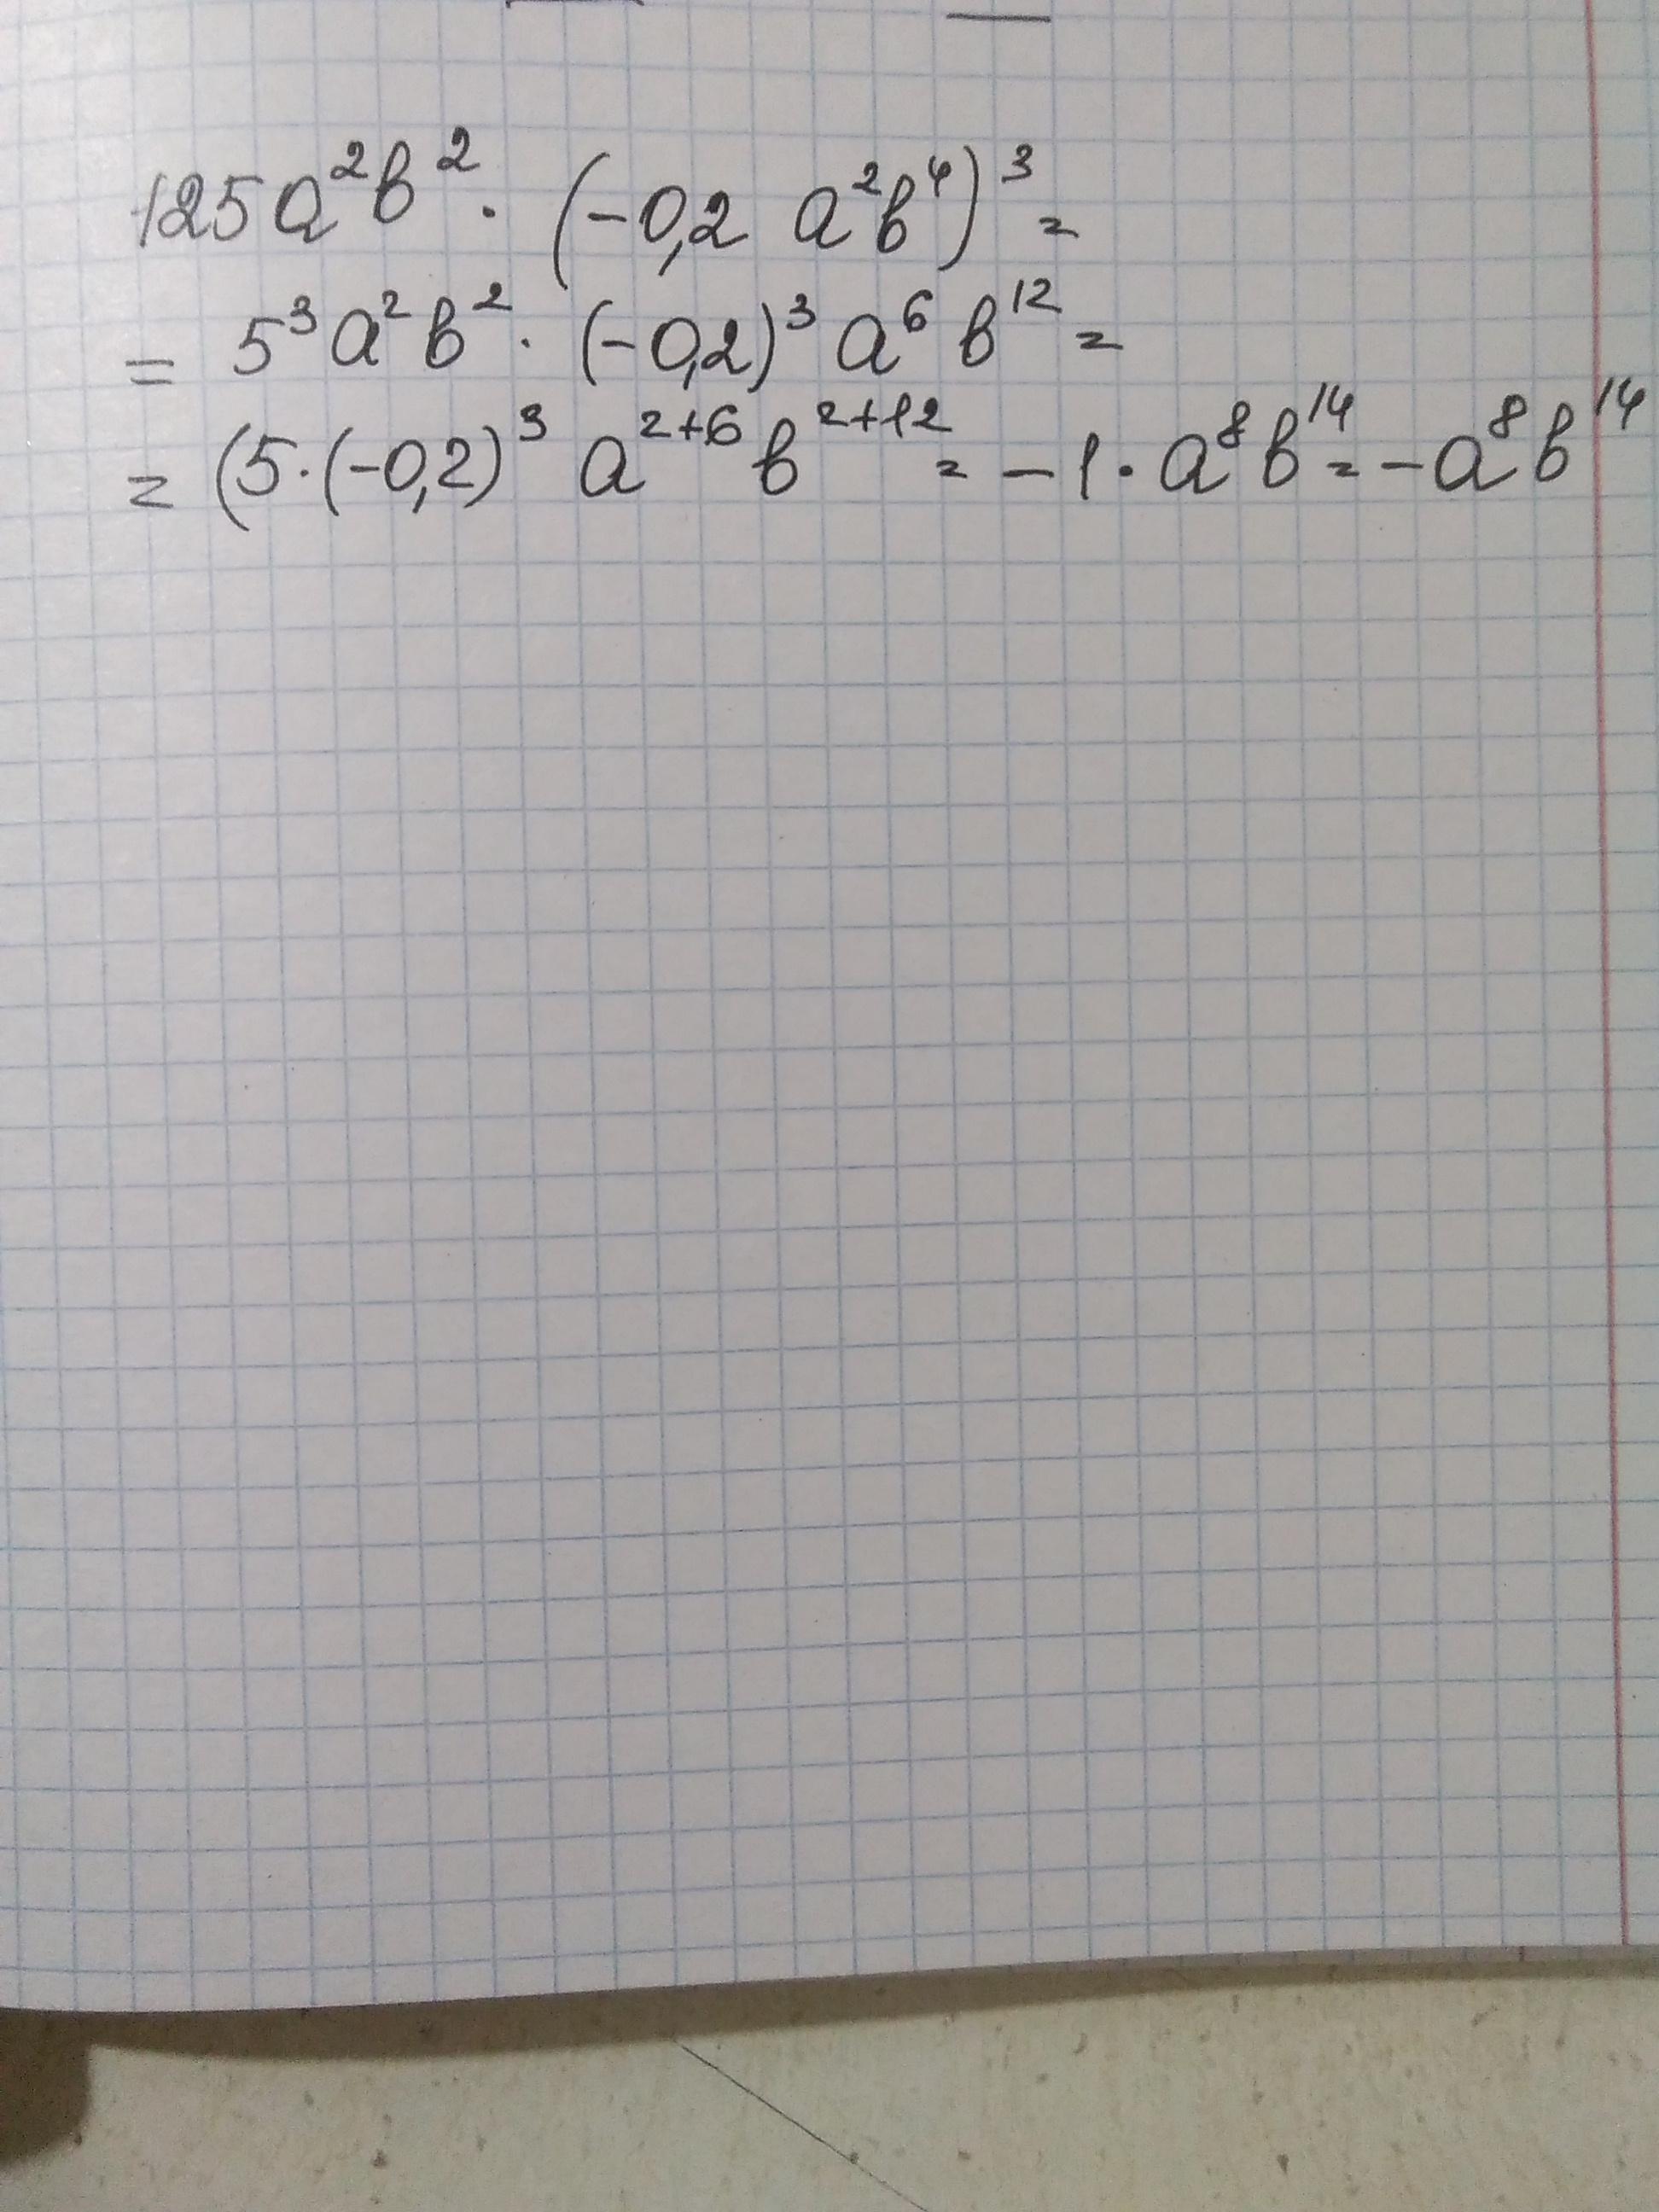 125a²b² · (-0,2 a²b⁴)³ =
= 5³a²b² · (-0,2)³ a⁶ b¹² =
= (5·(-0,2)³ a²⁺⁶ b²⁺¹² = -1· a⁸b¹⁴ = -a⁸b¹⁴